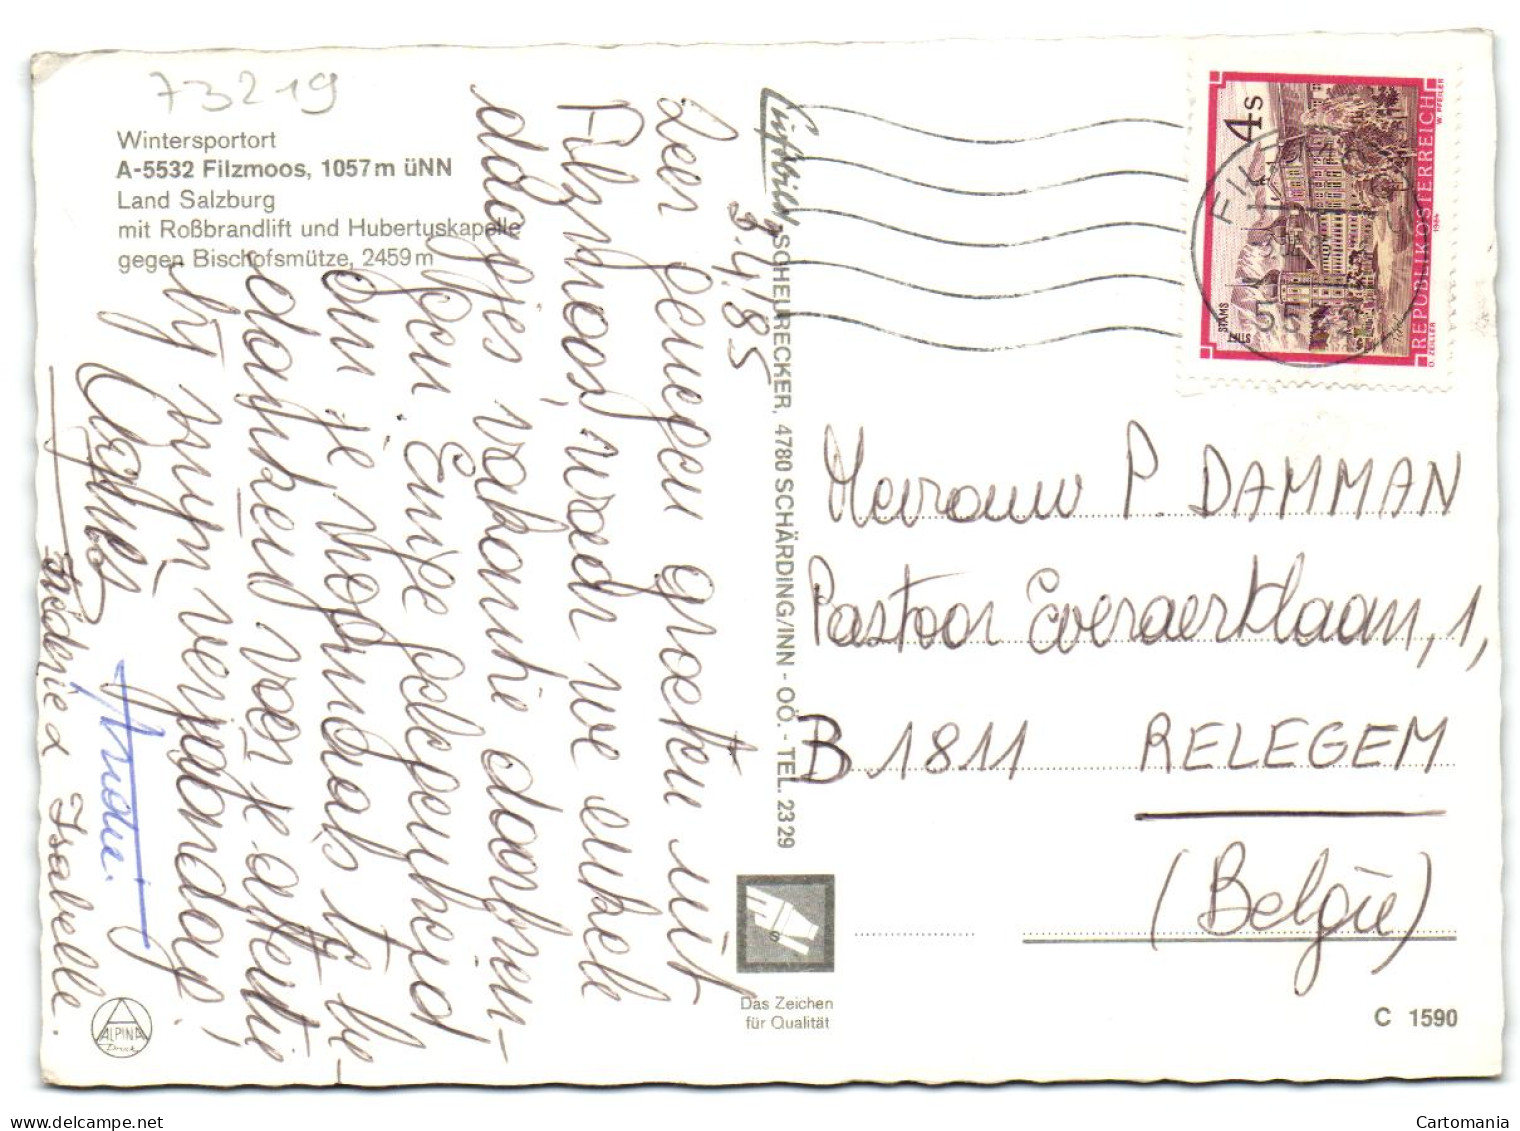 73219
Wintersportort
A-5532 Filzmoos, 1057 m üNN
Land Salzburg
mit Roßbrandlift und Hubertuskapelle
gegen Bischofsmütze, 2459 m
3.4/85
Zeer genegen groeten uit
Filzmoos, waar we enkele
dagjes vakantie doorbren-
gen. Enige gelegenheid
om je nogmaals te be-
danken voor je attentie
bij mijn verjaardag!
Agnes
André.
Frederic & Isabelle.
ALPINA
Druck
SCHEURECKER, 4780 SCHÄRDING/INN - OÖ. - TEL. 2329
Das Zeichen
für Qualität
4 S
STIFT STAMS
REPUBLIK ÖSTERREICH
1984
O. ZEILER
W. PFEILER
5532
Mevrouw P. DAMMAN
Pastoor Everaertlaan, 1,
B 1811 RELEGEM
(België)
C 1590
Cartomania
delcampe.net